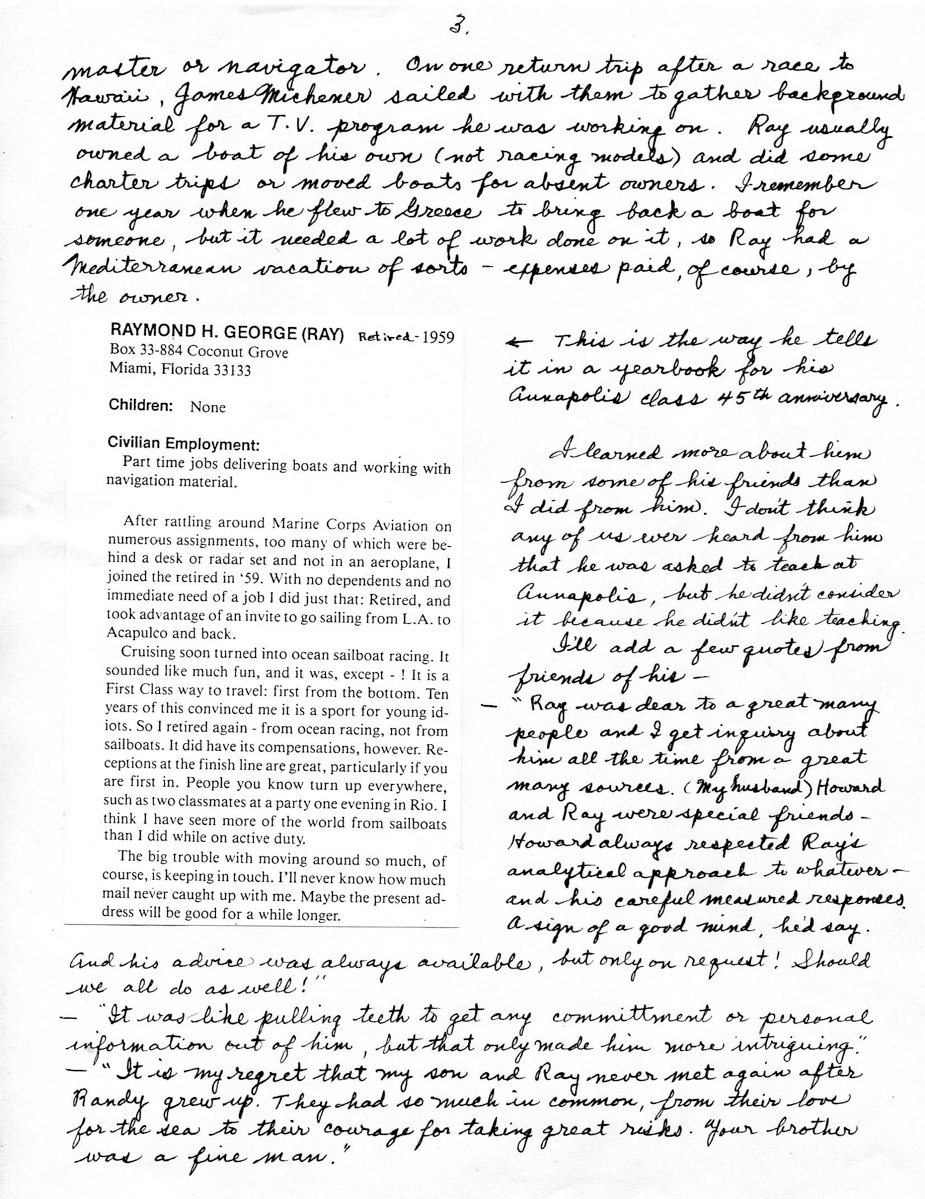 3.
master or navigator. On one return trip after a race to
Hawaii, James Michener sailed with them to gather background
material for a T.V. program he was working on. Ray usually
owned a boat of his own (not racing models) and did some
charter trips or moved boats for absent owners. I remember
one year when he flew to Greece to bring back a boat for
someone, but it needed a lot of work done on it, so Ray had a
Mediterranean vacation of sorts – expenses paid, of course, by
the owner.
RAYMOND H. GEORGE (RAY) Retired - 1959
Box 33-884 Coconut Grove
Miami, Florida 33133
Children: None
Civilian Employment:
Part time jobs delivering boats and working with
navigation material.
After rattling around Marine Corps Aviation on
numerous assignments, too many of which were be-
hind a desk or radar set and not in an aeroplane, I
joined the retired in '59. With no dependents and no
immediate need of a job I did just that: Retired, and
took advantage of an invite to go sailing from L.A. to
Acapulco and back.
Cruising soon turned into ocean sailboat racing. It
sounded like much fun, and it was, except - ! It is a
First Class way to travel: first from the bottom. Ten
years of this convinced me it is a sport for young id-
iots. So I retired again - from ocean racing, not from
sailboats. It did have its compensations, however. Re-
ceptions at the finish line are great, particularly if you
are first in. People you know turn up everywhere,
such as two classmates at a party one evening in Rio. I
think I have seen more of the world from sailboats
than I did while on active duty.
The big trouble with moving around so much, of
course, is keeping in touch. I'll never know how much
mail never caught up with me. Maybe the present ad-
dress will be good for a while longer.
← This is the way he tells
it in a yearbook for his
Annapolis class 45th anniversary.
I learned more about him
from some of his friends than
I did from him. I don't think
any of us ever heard from him
that he was asked to teach at
Annapolis, but he didn't consider
it because he didn't like teaching.
I'll add a few quotes from
friends of his –
– "Ray was dear to a great many
people and I get inquiry about
him all the time from a great
many sources. (My husband) Howard
and Ray were special friends –
Howard always respected Ray's
analytical approach to whatever –
and his careful measured responses.
A sign of a good mind, he'd say.
And his advice was always available, but only on request! Should
we all do as well!"
– "It was like pulling teeth to get any committment or personal
information out of him, but that only made him more intriguing."
– "It is my regret that my son and Ray never met again after
Randy grew up. They had so much in common, from their love
for the sea to their courage for taking great risks. Your brother
was a fine man."